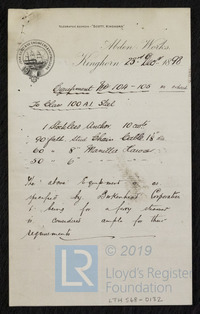 TELEGRAPHIC ADDRESS "SCOTT, KINGHORN"
Abden Works.
Kinghorn 23rd Decr 1898
Equipment Nos 104-105
To Class 100 A1 Steel
1 Stockless Anchor 10 cwts
90 fath Stud Chain Cable
60 - 8" Manilla Hawser
50 - 6"
The above Equipment is as
specified by Birkenhead Corporation
& being for a ferry steamer
is considered ample for their
requirements
© 2019
Lloyd's Register
Foundation
LTH 568-0132